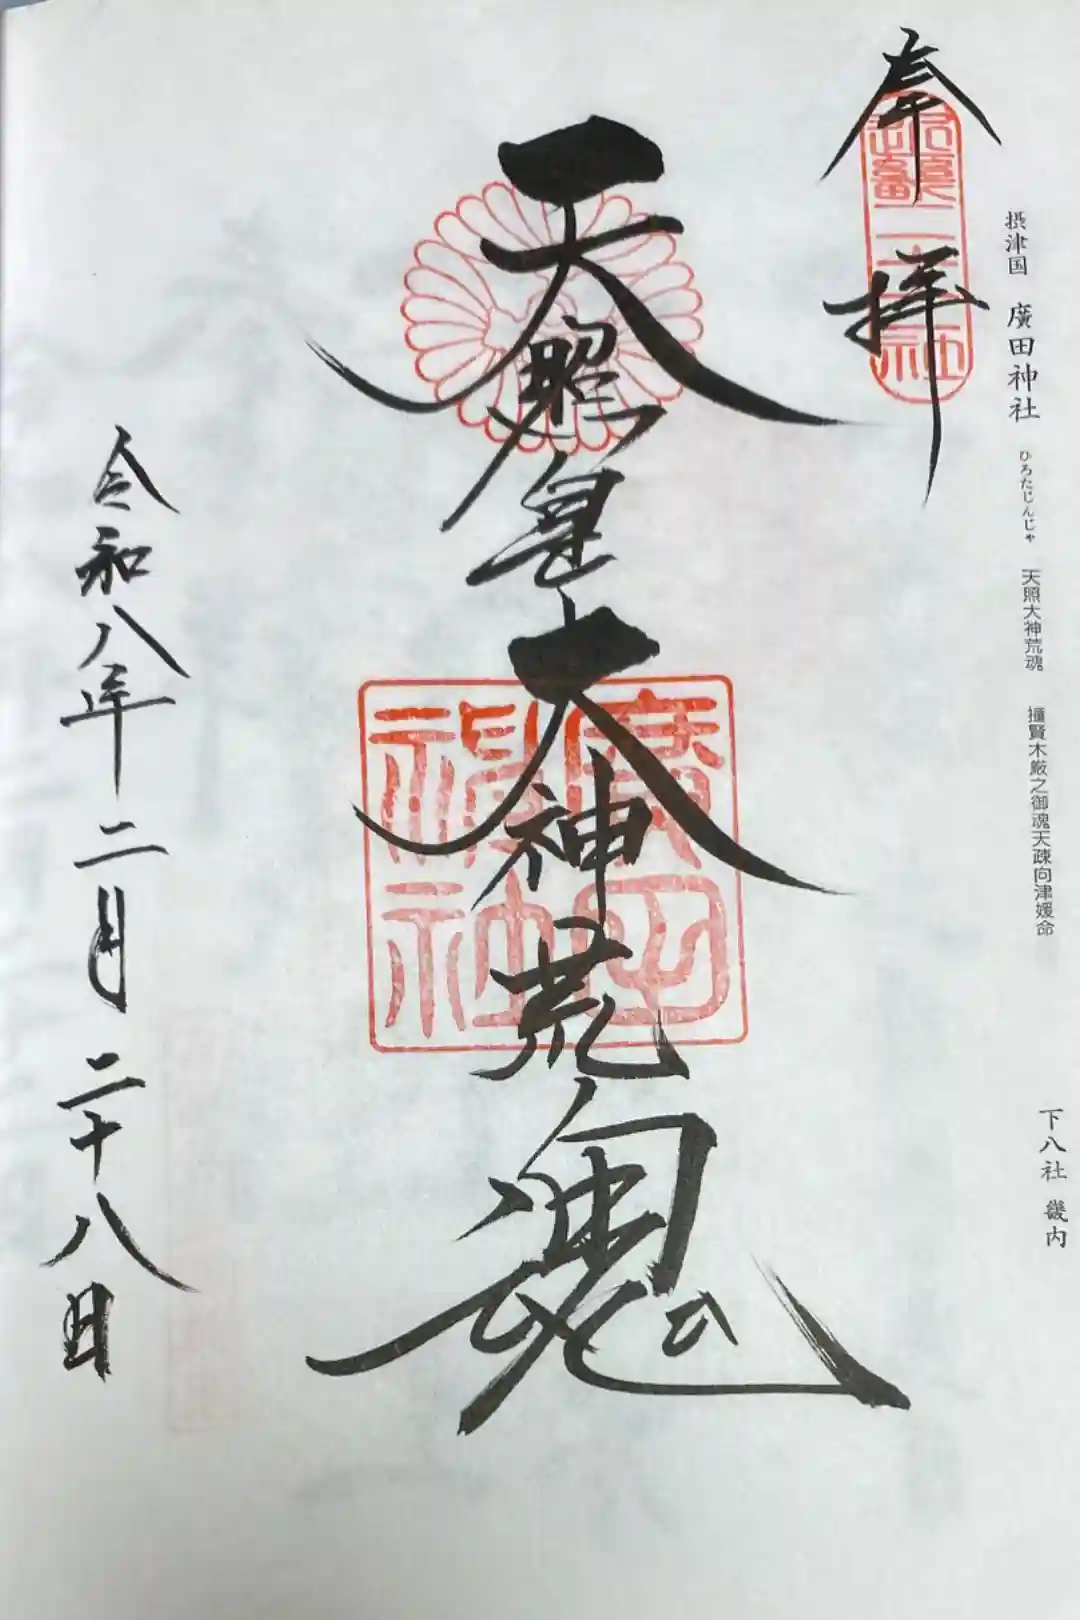 摂津国 廣田神社 ひろたじんじゃ 天照大神荒魂 撞賢木厳之御魂天疎向津媛命 下八社 畿内
奉拝
天照皇大神荒魂
廣田
神社
令和八年二月二十八日